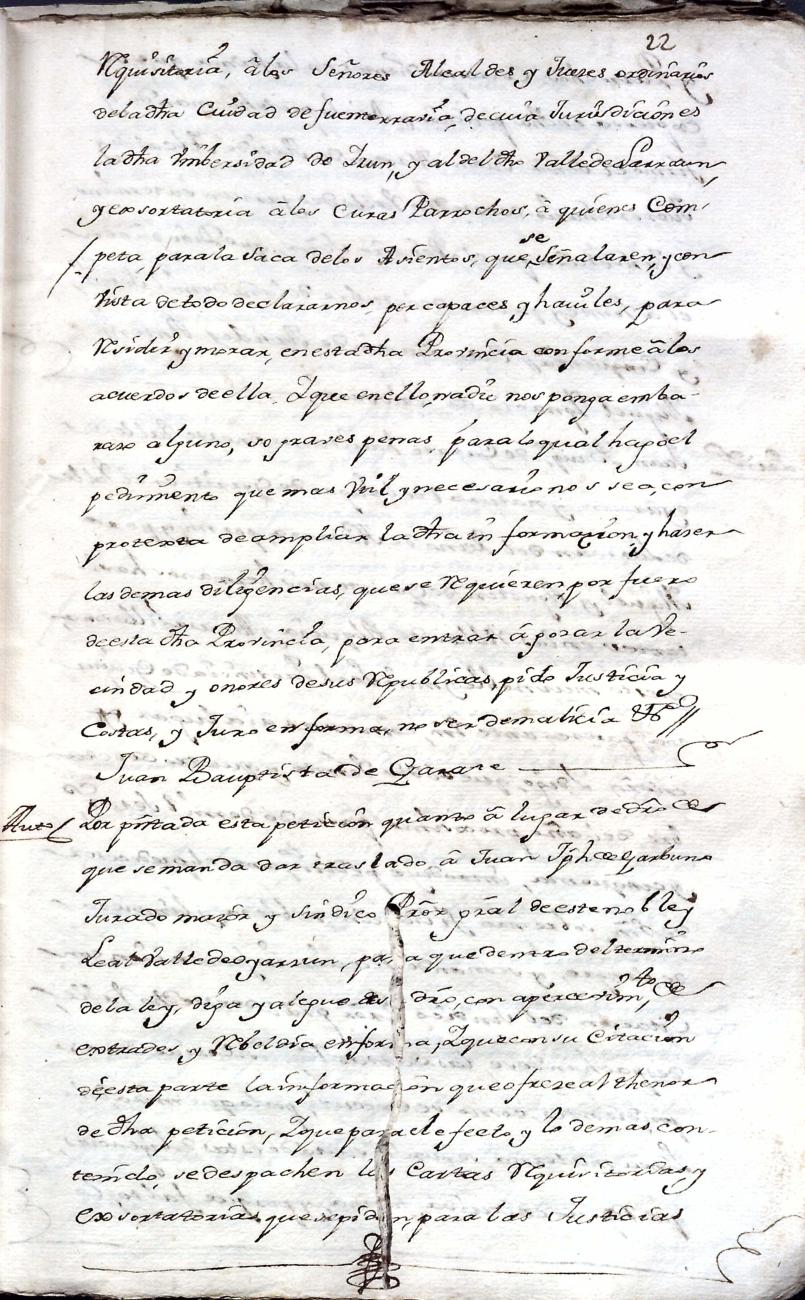 22
Rquisitoria, â los Señores Alcaldes y Jueces ordinarios
dela dha Ciudad de fuenterravia, de cuia Jurisdicion es
la dha Vnibersidad de Irun, y al del dho Valle de Larraun,
y exsortatoria â los Curas Parrochos, â quienes Com-
peta, para la saca delos Asientos, que se señalaren, y con
Vista de todo declararnos, por capaces y haviles, para
Rsidir y morar, en esta dha Provincia conforme â los
acuerdos de ella, Y que en ello nadie nos ponga emba-
razo alguno, so graves penas, para lo qual hago el
pedimento que mas Vtil y necesario nos sea, con
protexta de ampliar la dha informazion, y hazer
las demas diligencias, que se Rquieren, por fuero
de esta dha Provincia, para entrar â gozar la Ve-
cindad y onores de sus Rpublicas, pido Justicia y
Costas, y Juro en forma, no ser de malicia &a //
Juan Bauptista de Garate
Auto Por pntada esta peticion quanto â lugar de dro &
que se manda dar traslado, â Juan Jph de Garbuno
Jurado maior y sindico Pror gral de este noble y
Leal Valle de oyarzun, para que dentro del termino
de la ley, diga y alegue de su dro, con apercevimto, de
extrados, y Rbeldia en forma, Y que con su Citacion
dê esta parte la informacion que ofreze al thenor
de dha peticion, Y que para el efecto, y lo demas con-
tenido, se despachen las Cartas Rquisitorias, y
Exsortatorias, que se piden, para las Justicias